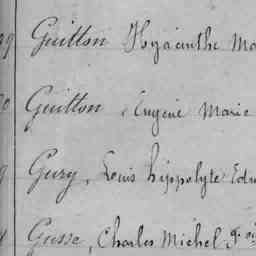 Guitton Hyacinthe Ma
Guitton, Eugène Marie
Gury, Louis hippolyte Edm
Gusse, Charles Michel